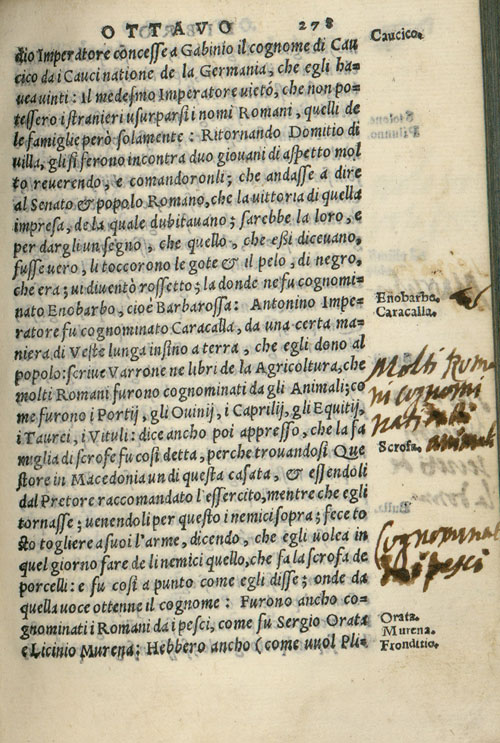 OTTAVO 278
dio Imperatore concesse a Gabinio il cognome di Cau
cico da i Cauci natione de la Germania, che egli ha-
uea uinti: Il medesmo Imperatore uietó, che non po-
tessero i stranieri usurparsi i nomi Romani, quelli de
le famiglie però solamente: Ritornando Domitio di
uilla, gli si ferono incontra duo giouani di aspetto mol
to reuerendo, e comandoronli; che andasse a dire
al Senato & popolo Romano, che la uittoria di quella
impresa, de la quale dubitauano; sarebbe la loro, e
per dargli un segno, che quello, che essi diceuano,
fusse uero, li toccorono le gote & il pelo, di negro,
che era; ut diuentò rossetto; la donde ne fu cognomi-
nato Enobarbo, cioè Barbarossa: Antonino Impe-
ratore fu cognominato Caracalla, da una certa ma-
niera di Veste lunga insino a terra, che egli dono al
popolo: scriue Varrone ne libri de la Agricoltura, che
molti Romani furono cognominati da gli Animali; co
me furono i Portij, gli Ouinij, i Caprilij, gli Equitij,
i Taurei, i Vituli: dice ancho poi appresso, che la fa
miglia di scrofe fu così detta, perche trouandosi Que
store in Macedonia un di questa casata, & essendoli
dal Pretore raccomandato l'essercito, mentre che egli
tornasse; uenendoli per questo i nemici sopra; fece to
sto togliere a suoi l'arme, dicendo, che egli uolea in
quel giorno fare de li nemici quello, che fa la scrofa de
porcelli: e fu così a punto come egli disse; onde da
quella uoce ottenne il cognome: Furono ancho co-
gnominati i Romani da i pesci, come fù Sergio Orata
e Licinio Murena: Hebbero ancho (come uuol Pli-
Caucico.
Enobarbo.
Caracalla.
Molti Roma
ni cognomi
nati da
Scrofa. animali
Cognominat
pesci
Orata.
Murena.
Fronditio.